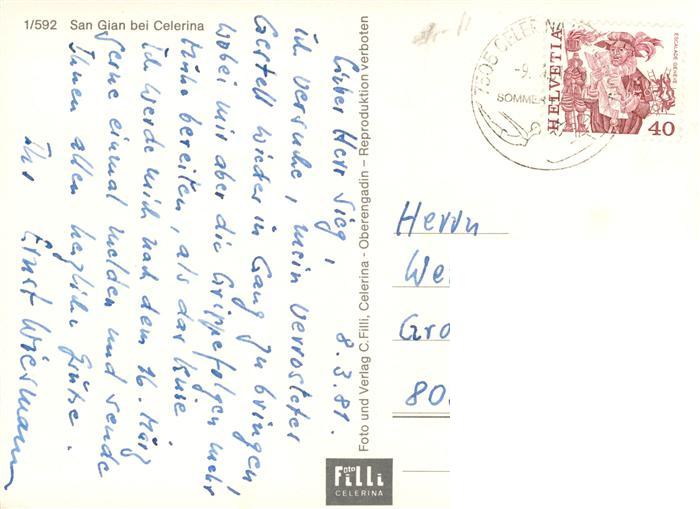 1/592 San Gian bei Celerina
8.3.81.
Lieber Herr Sieg,
ich versuche, mein verrostetes
Gestell wieder in Gang zu bringen,
wobei mir aber die Grippefolgen mehr
Mühe bereiten, als das Knie
Ich werde mich nach dem 16. März
gerne einmal melden und sende
Ihnen allen herzliche Grüsse.
Ihr Ernst Wiesmann
Foto und Verlag C.Filli, Celerina - Oberengadin – Reproduktion verboten
foto
Filli
CELERINA
7505 CELERINA
-9.
SOMMER
HELVETIA
ESCALADE GENÈVE
40
Herrn
We
Gro
80